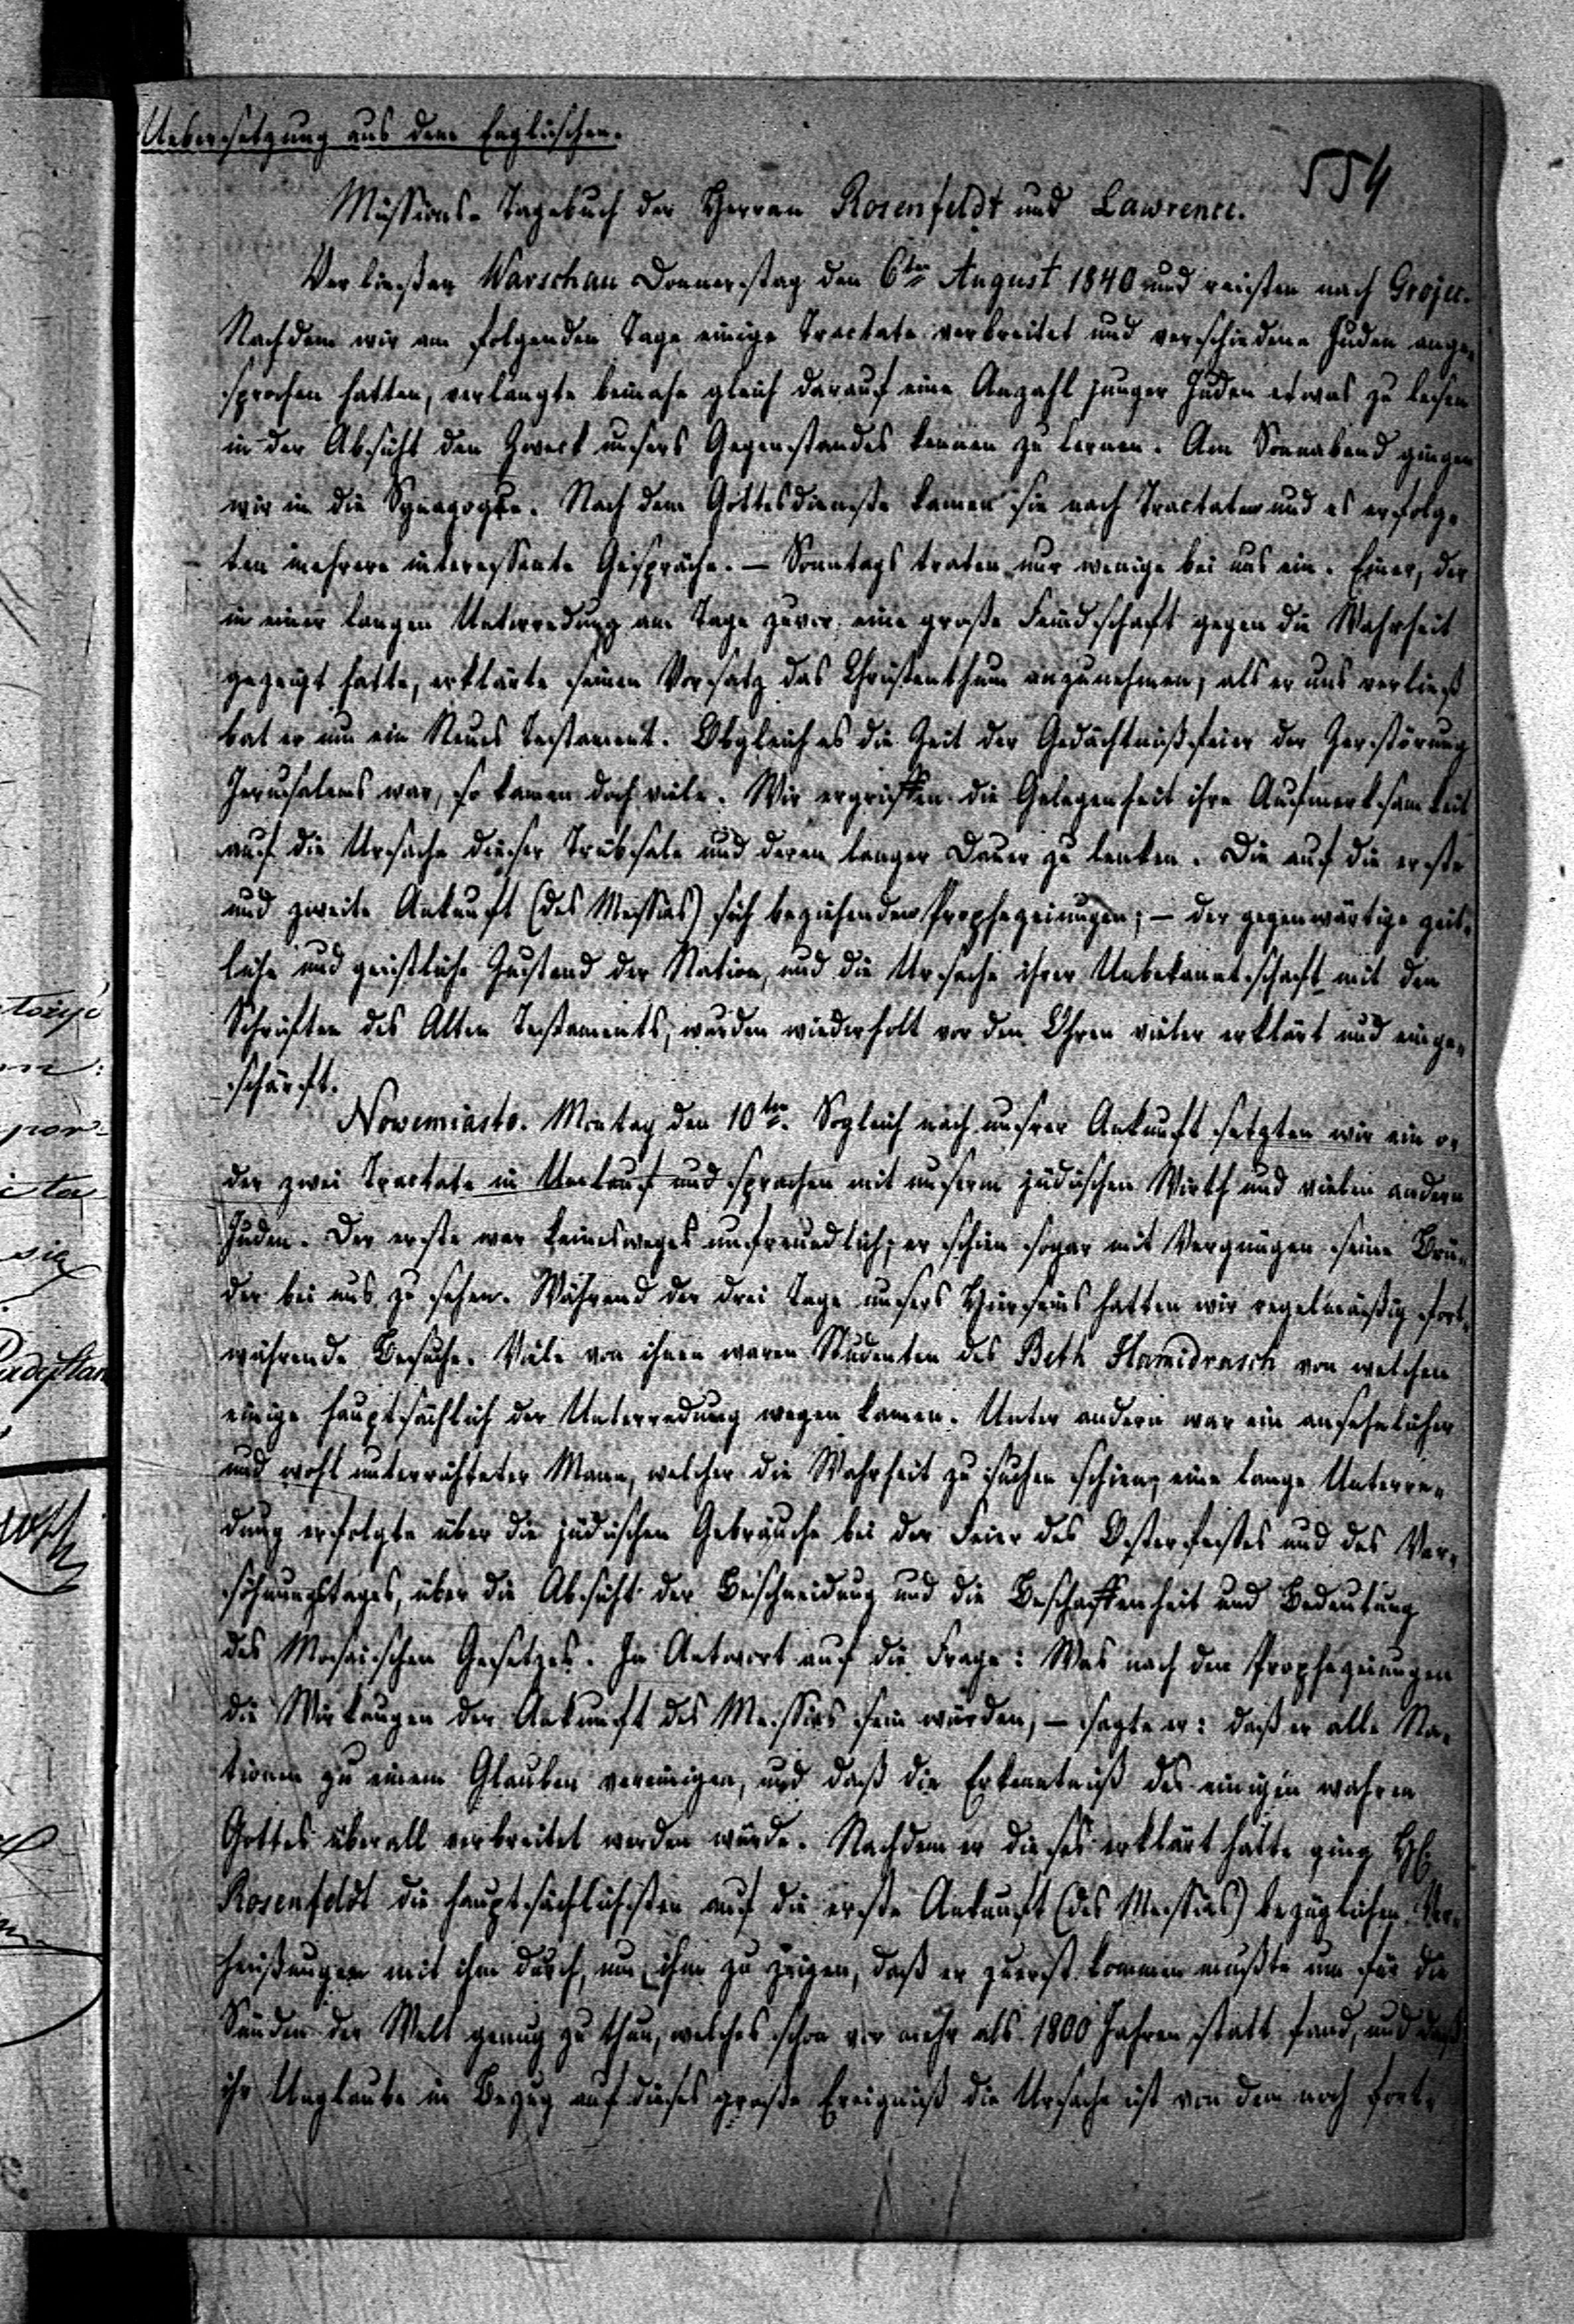 Uebersetzung aus dem Englischen.
554
Missions-Tagebuch der Herren Rosenfeldt und Lawrence.
Verließen Warschau Donnerstag den 6ten August 1840 und reisten nach Grojec.
Nachdem wir am folgenden Tage einige Tractate verbreitet und verschiedene Juden ange-
sprochen hatten, verlangte beinahe gleich darauf eine Anzahl junger Juden etwas zu lesen
in der Absicht den Zweck unsers Gegenstandes kennen zu lernen. Am Sonnabend gingen
wir in die Synagogue. Nach dem Gottesdienste kamen sie nach Tractaten und es erfolg-
ten mehrere interessante Gespräche. — Sonntags traten nur wenige bei uns ein. Einer, der
in einer langen Unterredung am Tage zuvor eine große Feindschaft gegen die Wahrheit
gezeigt hatte, erklärte seinen Vorsatz das Christenthum anzunehmen; als er uns verließ
bat er um ein Neues Testament. Obgleich es die Zeit der Gedächtnißfeier der Zerstörung
Jerusalems war, so kamen doch viele. Wir ergriffen die Gelegenheit ihre Aufmerksamkeit
auf die Ursache dieser Trübsale und deren langer Dauer zu lenken. Die auf die erste
und zweite Ankunft (des Messias) sich beziehenden Prophezeiungen; — der gegenwärtige zeit-
liche und geistliche Zustand der Nation, und die Ursache ihrer Unbekanntschaft mit den
Schriften des Alten Testaments, wurden wiederholt vor den Ohren vieler erklärt und einge-
schärft.
Nowemiasto. Montag den 10ten. Sogleich nach unsrer Ankunft setzten wir ein o-
der zwei Tractate in Umlauf und sprachen mit unserm jüdischen Wirth und vielen andern
Juden. Der erste war keinesweges unfreundlich; er schien sogar mit Vergnügen seine Brü-
der bei uns zu sehen. Während der drei Tage unsers Hierseins hatten wir regelmäßig fort-
während Besuche. Viele von ihnen waren Studenten des Beth Hamidrasch von welchen
einige hauptsächlich der Unterredung wegen kamen. Unter andern war ein ansehnlicher
und wohl unterrichteter Mann, welcher die Wahrheit zu suchen schien; eine lange Unterre-
dung erfolgte über die jüdischen Gebräuche bei der Feier des Osterfestes und des Ver-
söhnungstages, über die Absicht der Beschneidung und die Beschaffenheit und Bedeutung
des Mosaischen Gesetzes. In Antwort auf die Frage: Was nach den Prophezeiungen
die Wirkungen der Ankunft des Messias sein würden, — sagte er: daß er alle Na-
tionen zu einem Glauben vereinigen, und daß die Erkenntniß des einigen wahren
Gottes überall verbreitet werden würde. Nachdem er dieses erklärt hatte ging H.
Rosenfeldt die hauptsächlichsten auf die erste Ankunft (des Messias) bezüglichen Ver-
heißungen mit ihm durch, um ihm zu zeigen, daß er zuerst kommen mußte um für die
Sünden der Welt genug zu thun, welches schon vor mehr als 1800 Jahren statt fand, und daß
ihr Unglaube in Bezug auf dieses große Ereigniß die Ursache ist von dem noch fort-